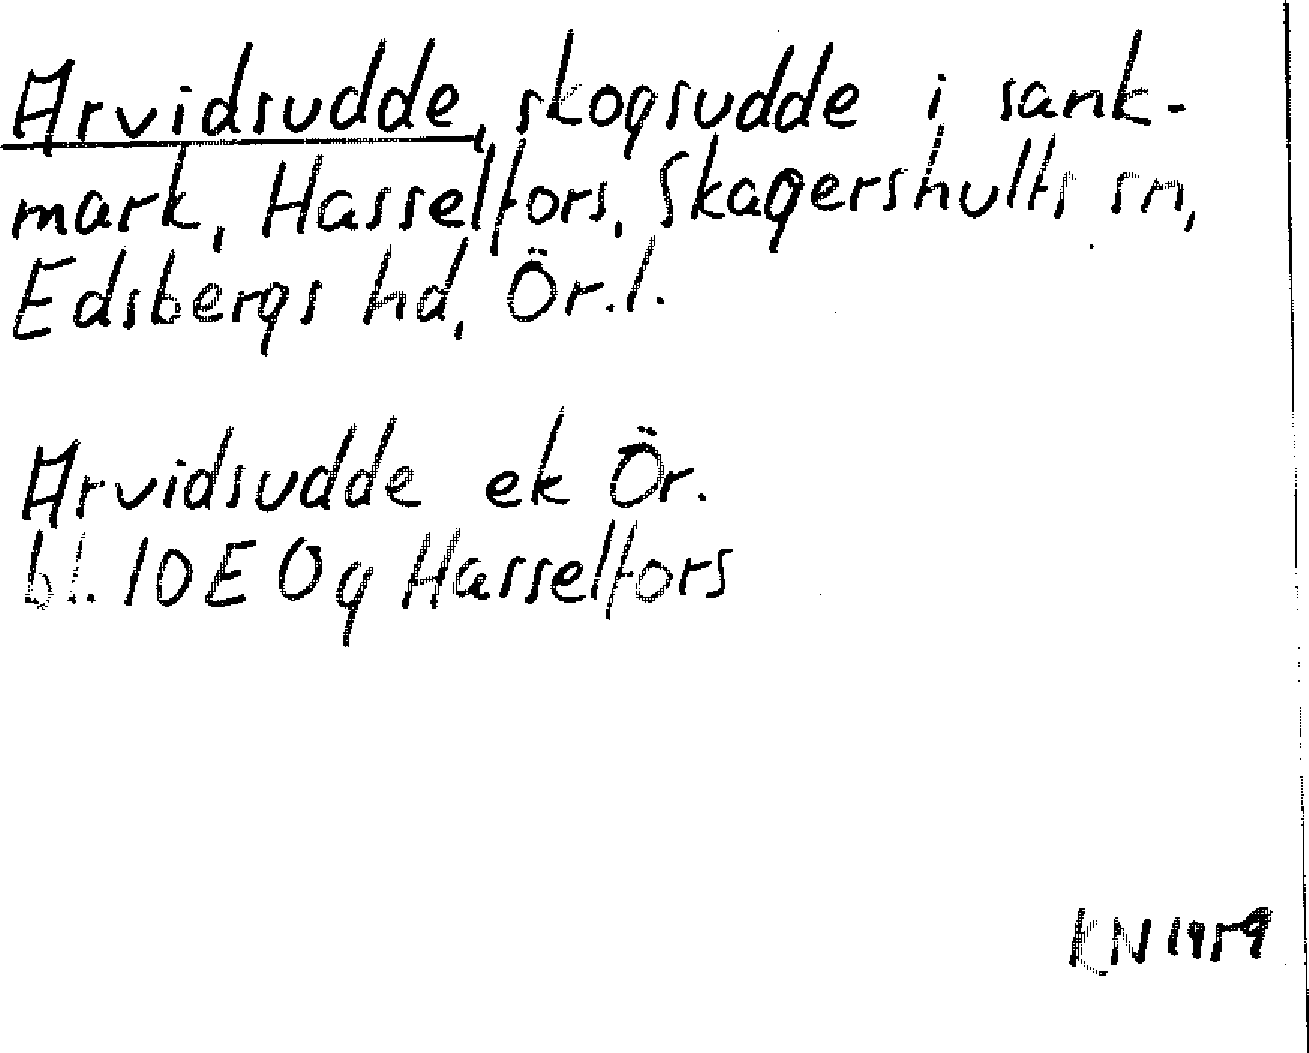 Arvidsudde, skogsudde i sank-
mark, Hasselfors, Skagershults sn,
Edsbergs hd, Ör.l.
Arvidsudde ek Ör.
bl. 10E 0g Hasselfors
KN 1959